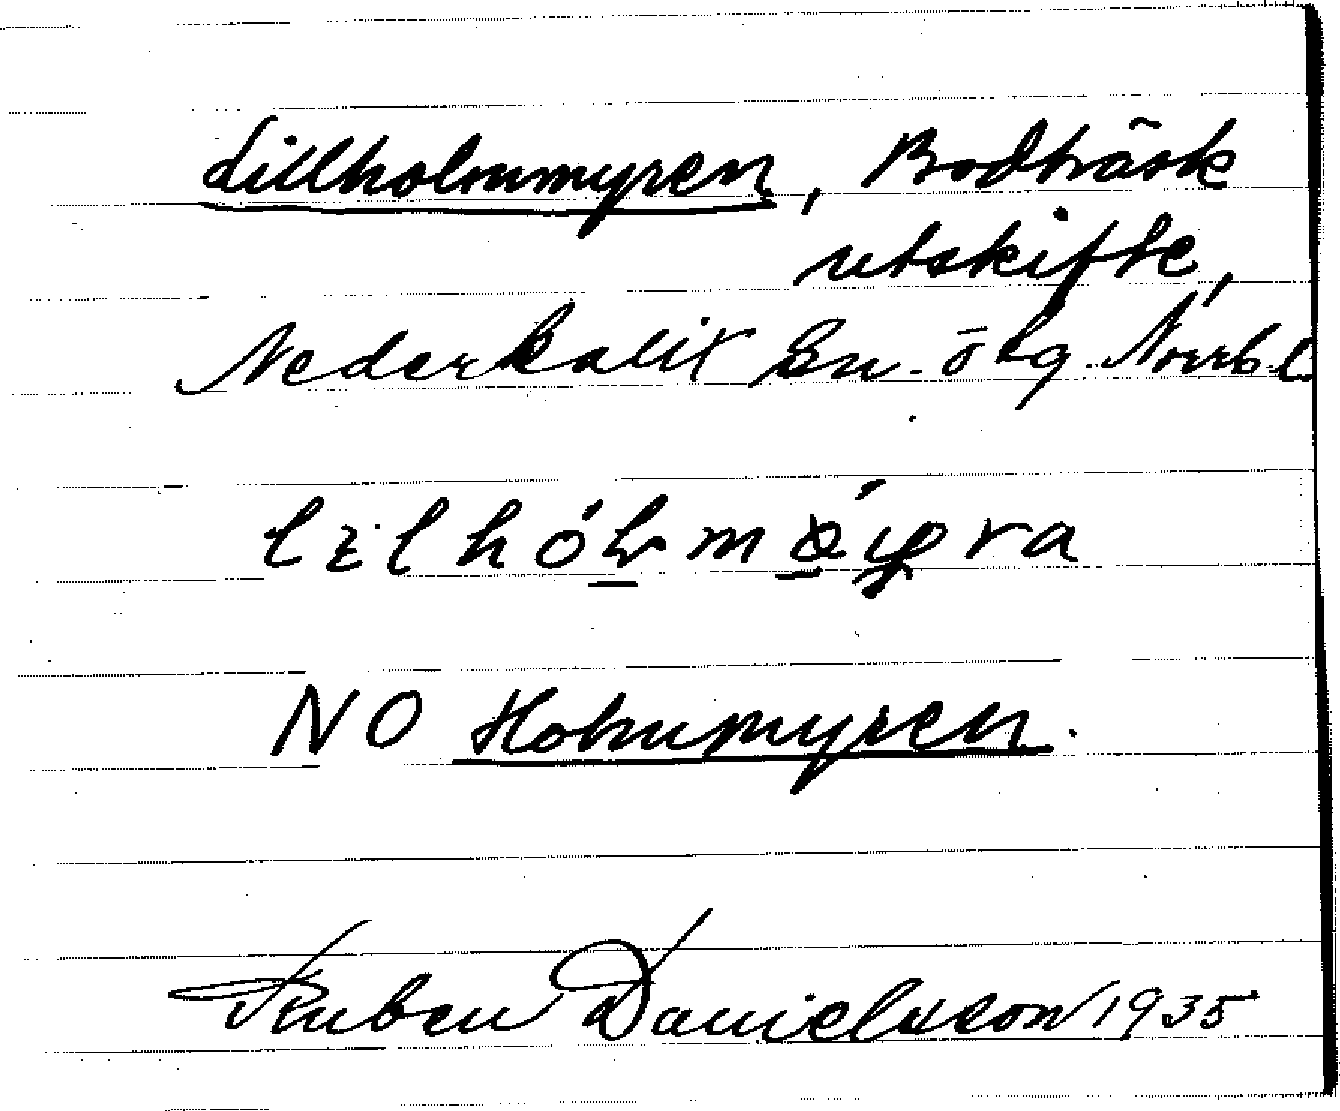 Lillholmmyren, Bodträsk
utskifte,
Nederkalix sn. ö lg. Norrb. l
NO Holmmyren.
Reuben Danielsson 1935